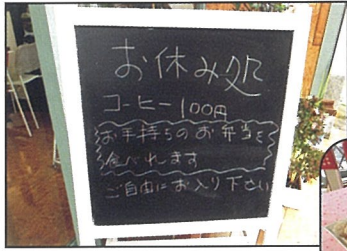 お休み処
コーヒー100円
お手持ちのお弁当を
食べれます
ご自由にお入り下さい